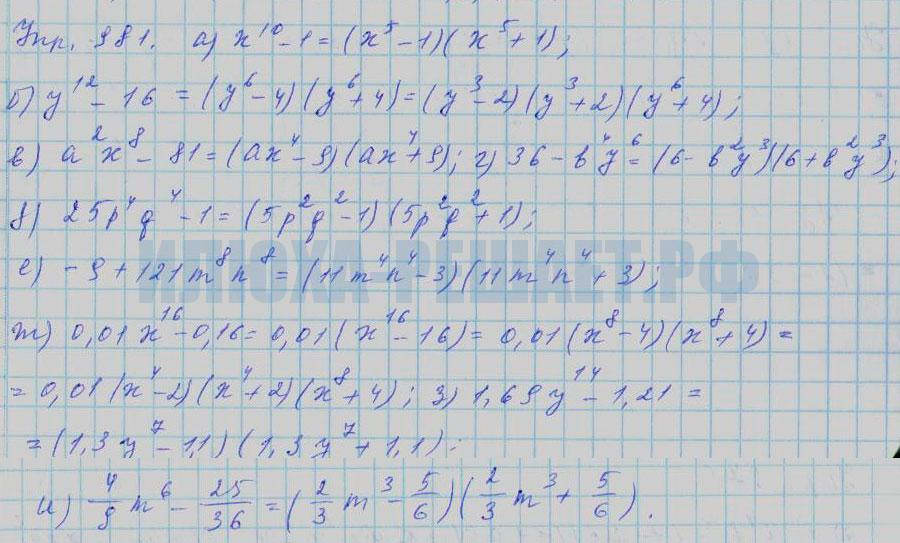 Упр. 981. а) x¹⁰ - 1 = (x⁵ - 1)(x⁵ + 1);
б) y¹² - 16 = (y⁶ - 4)(y⁶ + 4) = (y³ - 2)(y³ + 2)(y⁶ + 4);
в) a²x⁸ - 81 = (ax⁴ - 9)(ax⁴ + 9); г) 36 - b⁴y⁶ = (6 - b²y³)(6 + b²y³);
д) 25p⁴q⁴ - 1 = (5p²q² - 1)(5p²q² + 1);
ИЛЮХА-РЕШАЕТ.РФ
е) -9 + 121m⁸n⁸ = (11m⁴n⁴ - 3)(11m⁴n⁴ + 3);
ж) 0,01x¹⁶ - 0,16 = 0,01(x¹⁶ - 16) = 0,01(x⁸ - 4)(x⁸ + 4) =
= 0,01(x⁴ - 2)(x⁴ + 2)(x⁸ + 4); з) 1,69y¹⁴ - 1,21 =
= (1,3y⁷ - 1,1)(1,3y⁷ + 1,1);
и) 4/9 m⁶ - 25/36 = (2/3 m³ - 5/6)(2/3 m³ + 5/6).